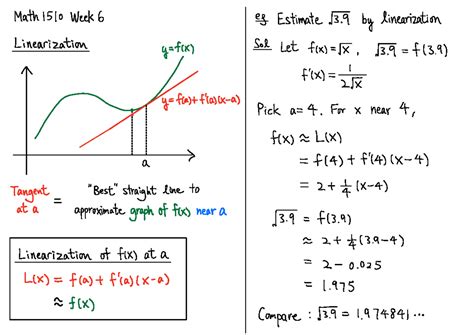 Math 1510 Week 6
Linearization
y=f(x)
y=f(a)+f'(a)(x-a)
a
Tangent at a = "Best" straight line to approximate graph of f(x) near a
Linearization of f(x) at a
L(x) = f(a) + f'(a)(x-a)
≈ f(x)
eg Estimate √3.9 by linearization
Sol Let f(x)=√x, √3.9 = f(3.9)
f'(x) = 1/(2√x)
Pick a=4. For x near 4,
f(x) ≈ L(x)
= f(4) + f'(4)(x-4)
= 2 + 1/4 (x-4)
√3.9 = f(3.9)
≈ 2 + 1/4 (3.9-4)
= 2 - 0.025
= 1.975
Compare : √3.9 = 1.974841...